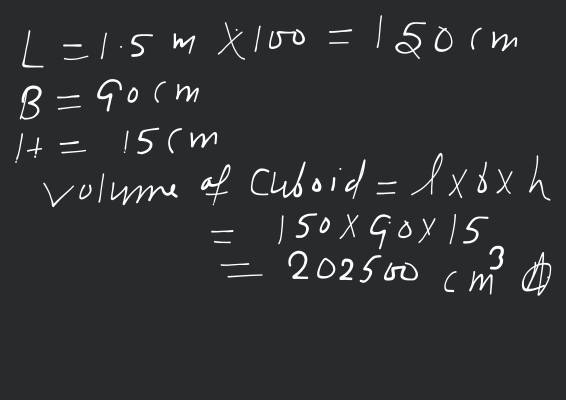 L = 1.5 m X 100 = 150 cm
B = 90 cm
H = 15 cm
Volume of Cuboid = l x b x h
= 150 X 90 X 15
= 202500 cm³